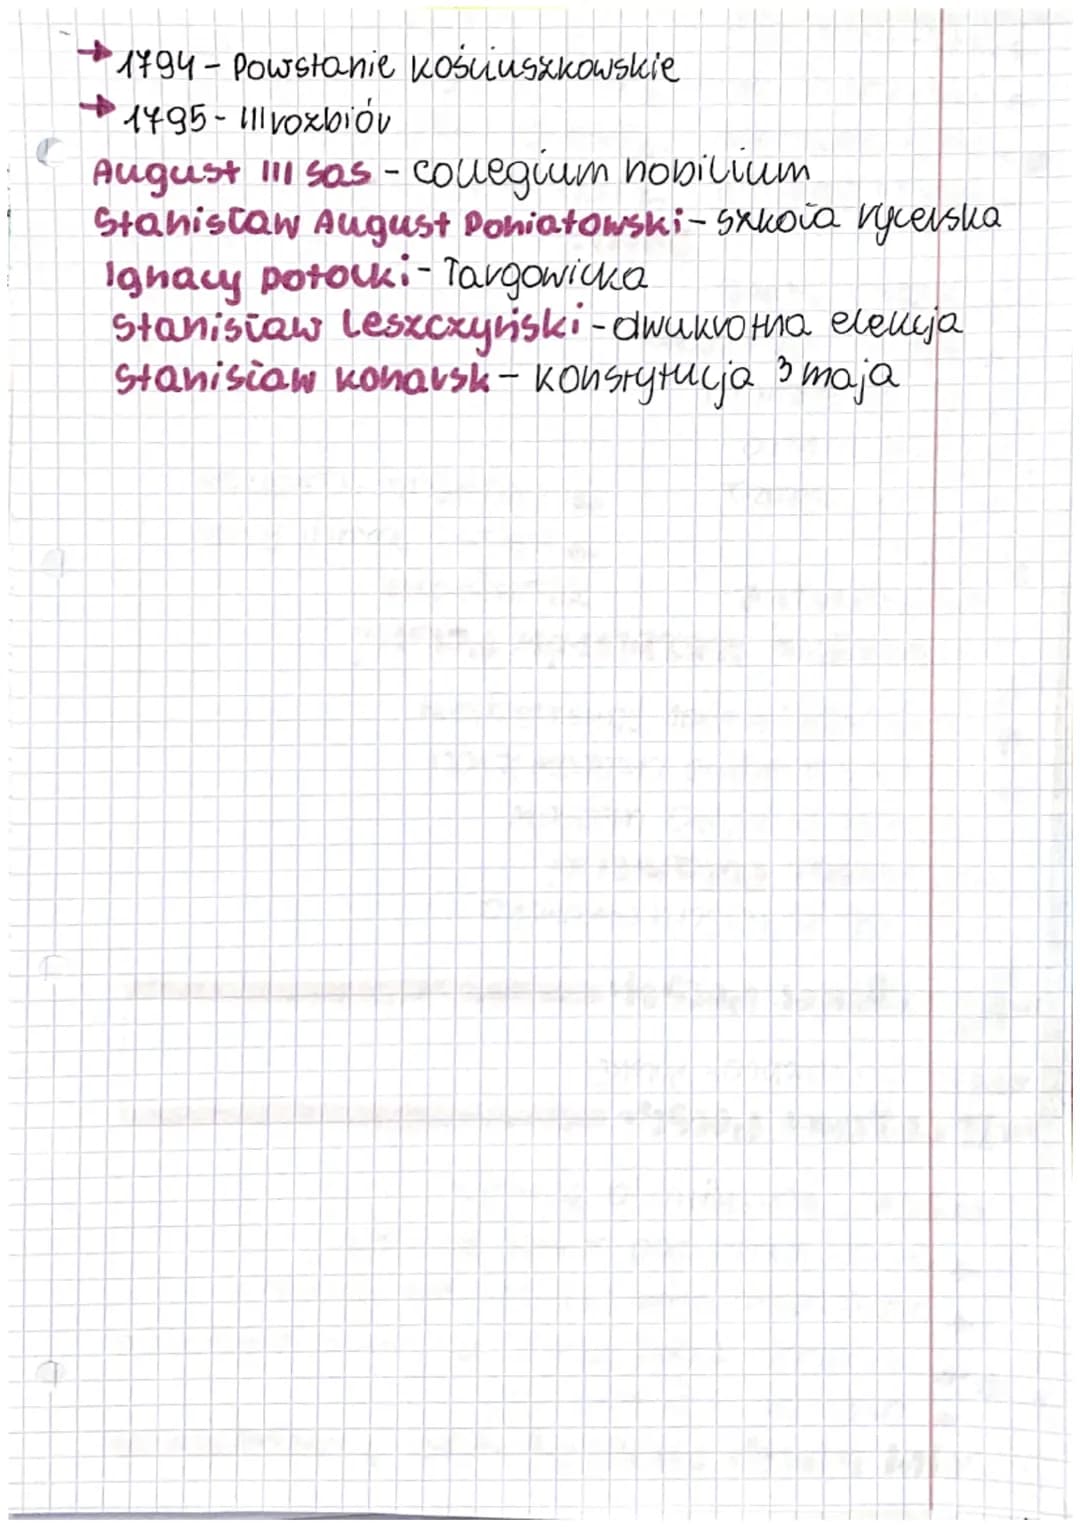 → 1794 - Powstanie kościuszkowskie
→ 1795 - III rozbiór
August III Sas - collegium nobilium
Stanisław August Poniatowski - szkoła rycerska
Ignacy potocki - Targowicka
Stanisław Leszczyński - dwukrotna elekcja
Stanisław konarsk - konstytucja 3 maja